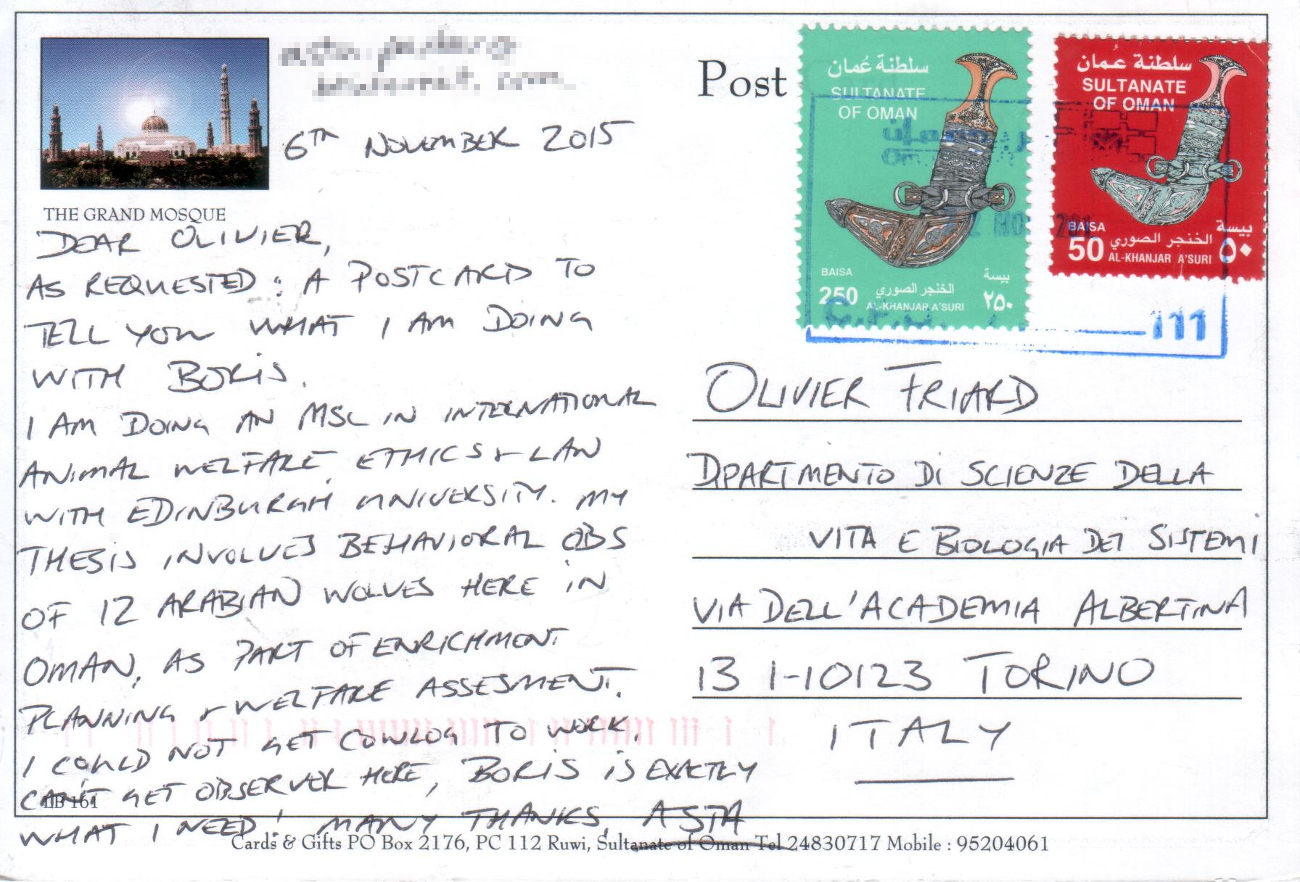 6TH NOVEMBER 2015
THE GRAND MOSQUE
DEAR OLIVIER,
AS REQUESTED: A POSTCARD TO
TELL YOU WHAT I AM DOING
WITH BORIS.
I AM DOING AN MSC IN INTERNATIONAL
ANIMAL WELFARE ETHICS & LAW
WITH EDINBURGH UNIVERSITY. MY
THESIS INVOLVES BEHAVIORAL OBS
OF 12 ARABIAN WOLVES HERE IN
OMAN, AS PART OF ENRICHMENT
PLANNING & WELFARE ASSESMENT.
I COULD NOT GET COWLOG TO WORK.
CAN'T GET OBSERVER HERE, BORIS IS EXACTLY
WHAT I NEED! MANY THANKS, ASTA
IIB 161
Post
سلطنة عمان
SULTANATE
OF OMAN
BAISA
250
الخنجر الصوري
AL-KHANJAR A'SURI
بيسة
٢٥٠
سلطنة عمان
SULTANATE
OF OMAN
BAISA
50
الخنجر الصوري
AL-KHANJAR A'SURI
بيسة
٥٠
111
OLIVIER FRIARD
DPARTMENTO DI SCIENZE DELLA
VITA E BIOLOGIA DEI SISTEMI
VIA DELL'ACADEMIA ALBERTINA
13 I-10123 TORINO
ITALY
Cards & Gifts PO Box 2176, PC 112 Ruwi, Sultanate of Oman Tel 24830717 Mobile : 95204061